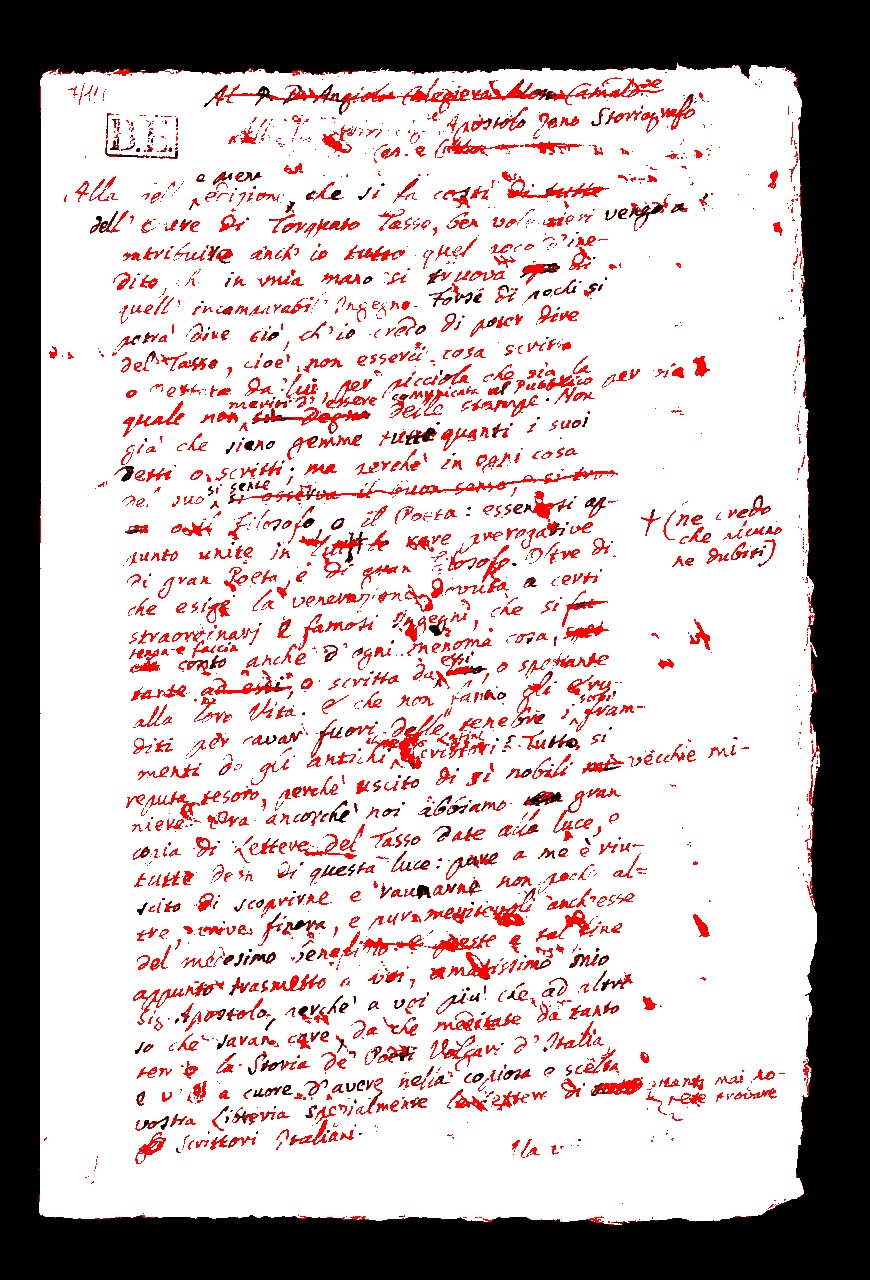 Al P. D. Angiolo Calogierà Mon. Camald.se
Apostolo Zeno Storiografo
Ces. e
B.E.
e piena
Alla edizione, che si fa costì di tutte
dell' Opere di Torquato Tasso, ben volentieri vengo a
contribuire anch' io tutto quel poco d'ine-
dito, ch' in mia mano si truova di
quell' incomparabil Ingegno. Forse di pochi si
potrà dire ciò, ch'io credo di poter dire
del Tasso, cioè, non esserci cosa scritta
o dettata da lui, per picciola che sia, la
meriti d'essere comunicata al Pubblico per via
quale non sia degna delle stampe. Non
già che sieno gemme tutti quanti i suoi
detti o scritti; ma perchè in ogni cosa
si sente
del suo si osserva il buon senso, e si truo
o il Filosofo, o il Poeta: essendosi ap-
† (ne credo
che alcuno
ne dubiti)
punto unite in lui le rare prerogative
di gran Poeta, e di gran Filosofo. Oltre di
che esige la venerazione dovuta a certi
straordinarj e famosi Ingegni, che si fac
tenga e faccia
conto anche d'ogni menoma cosa, spet
essi
tante ad essi, o scritta da loro, o spettante
alla loro Vita. E che non fanno gli Eru-
diti per cavar fuori delle tenebre i fram-
menti de gli antichi Scrittori? Tutto si
reputa tesoro, perchè uscito di sì nobili vecchie mi-
niere. Ora ancorchè noi abbiamo gran
copia di Lettere del Tasso date alla luce, e
tutte degne di questa luce: pure a me è riu-
scito di scoprirne e raunarne non poche al=
tre, finora, e pure meritevoli anch'esse
del medesimo benefizio. e queste a tal fine
appunto trasmetto a voi, amatissimo mio
Sig. Apostolo, perchè a voi più che ad altri
so che saran care, da che meditate da tanto
tempo la Storia de' Poeti Volgari d'Italia,
e a cuore d'avere nella copiosa e scelta
vostra Libreria specialmente le Lettere di quanti mai po-
tete trovare
Scrittori Italiani.